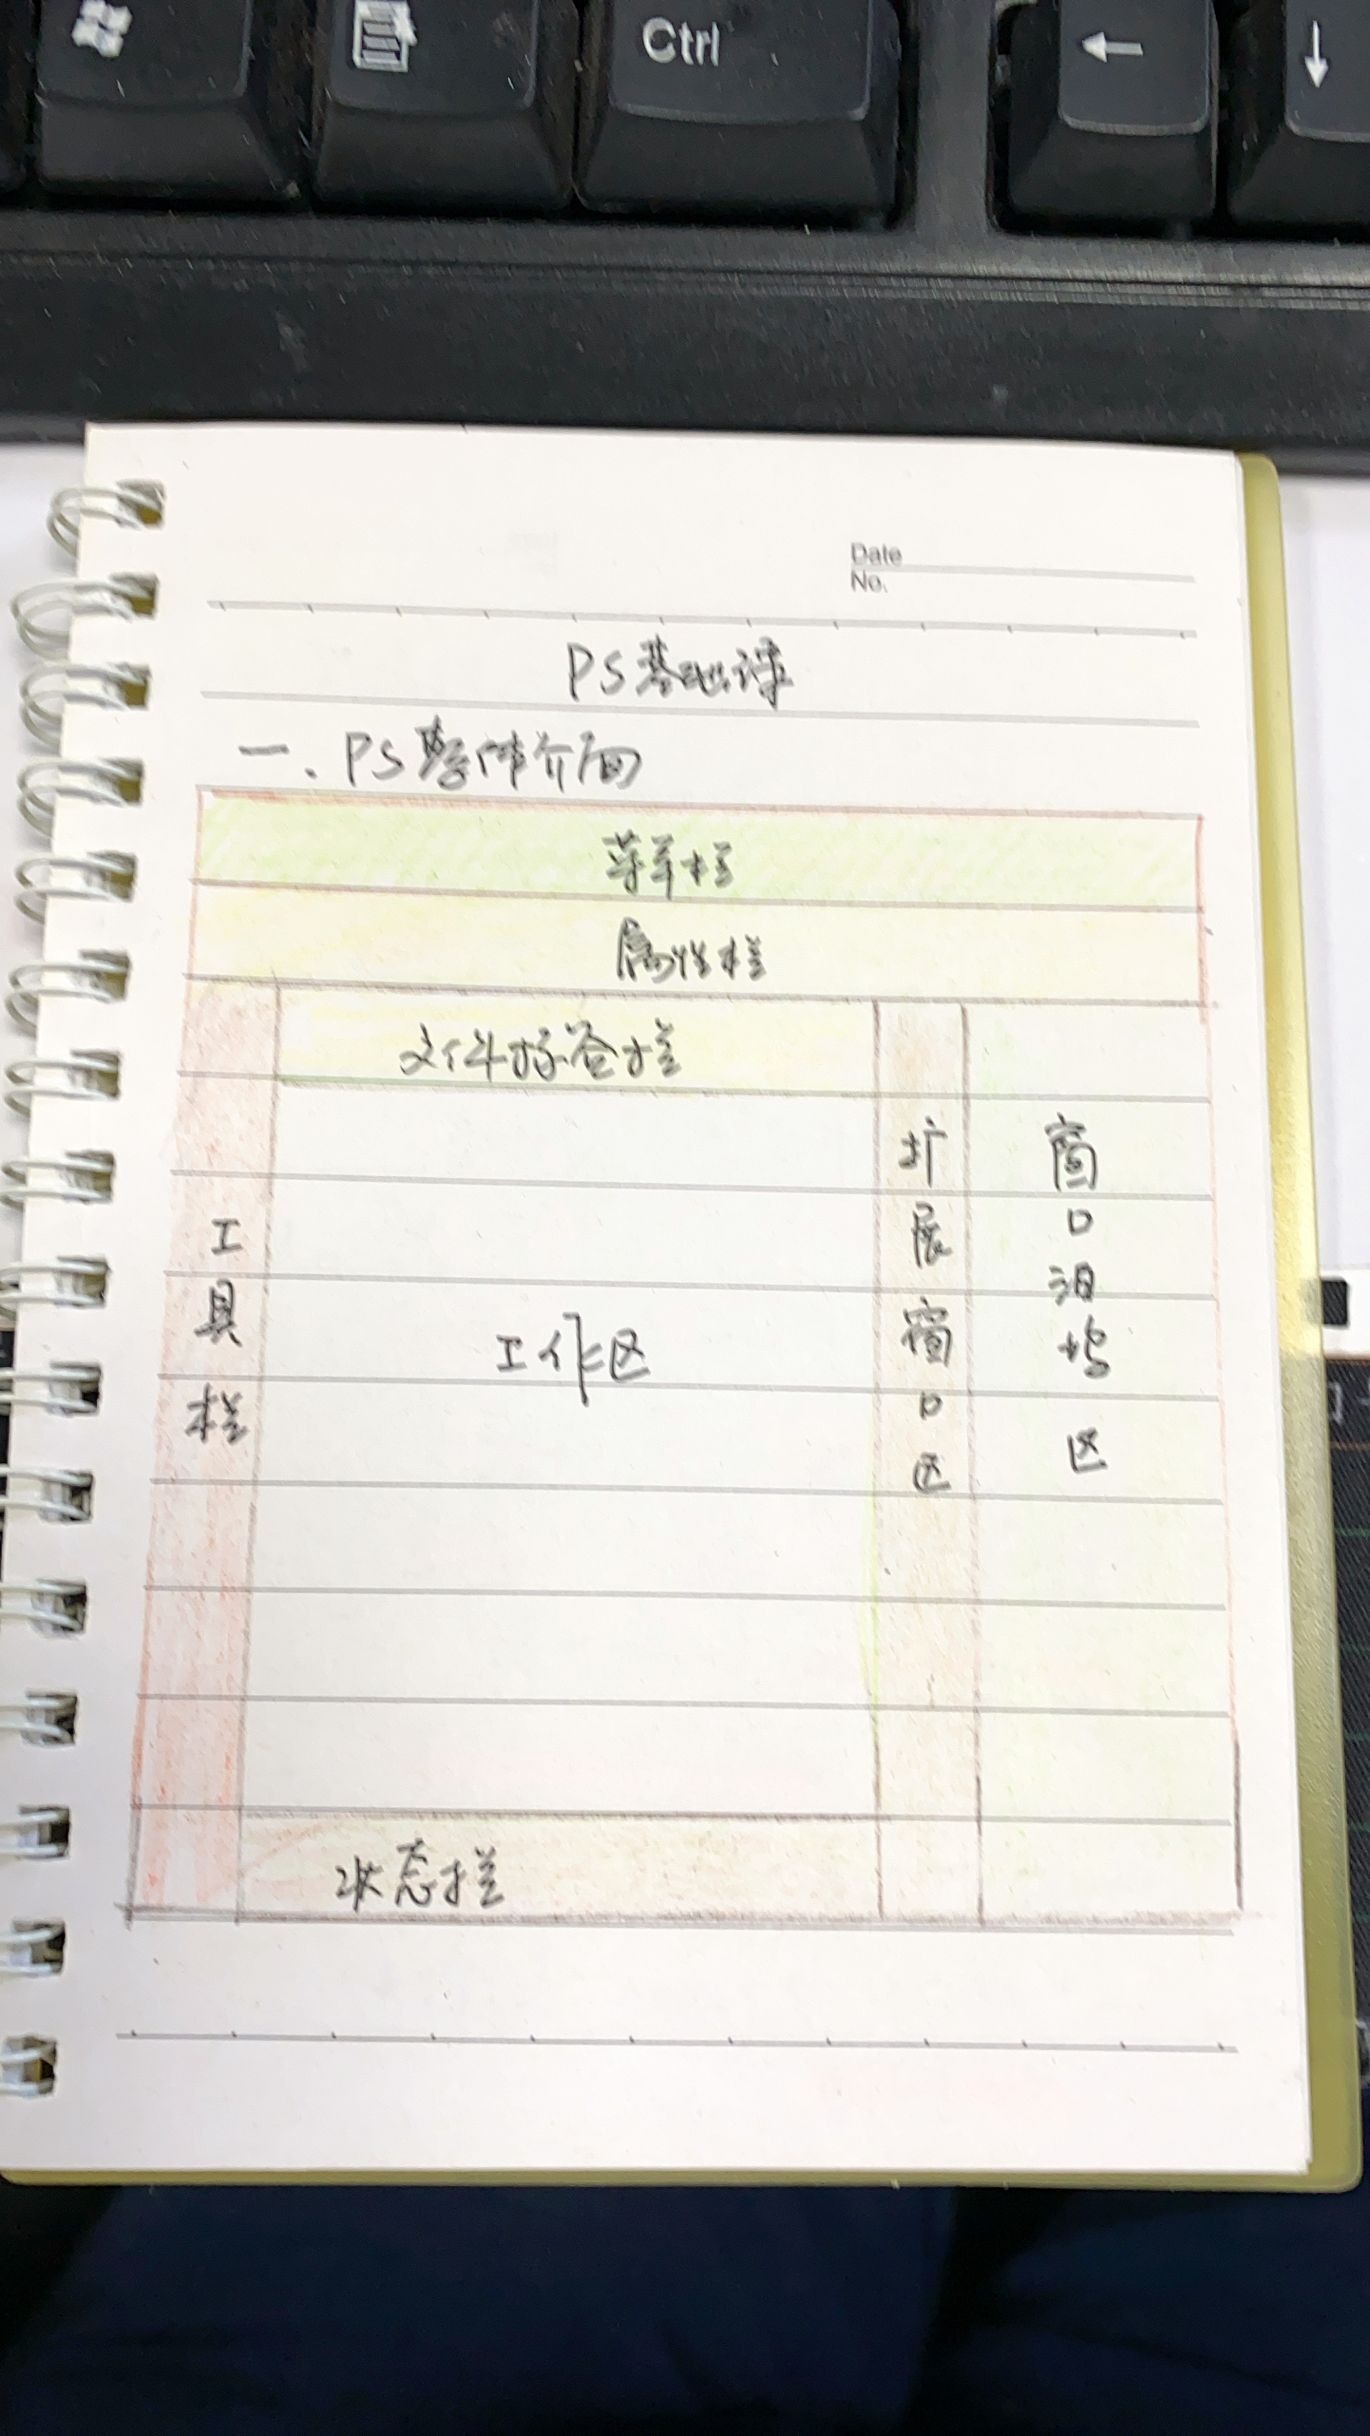 Ctrl
Date
No.
PS基础课
一、PS整体介面
菜单栏
属性栏
文件标签栏
工具栏
工作区
扩展窗口区
窗口泊坞区
状态栏